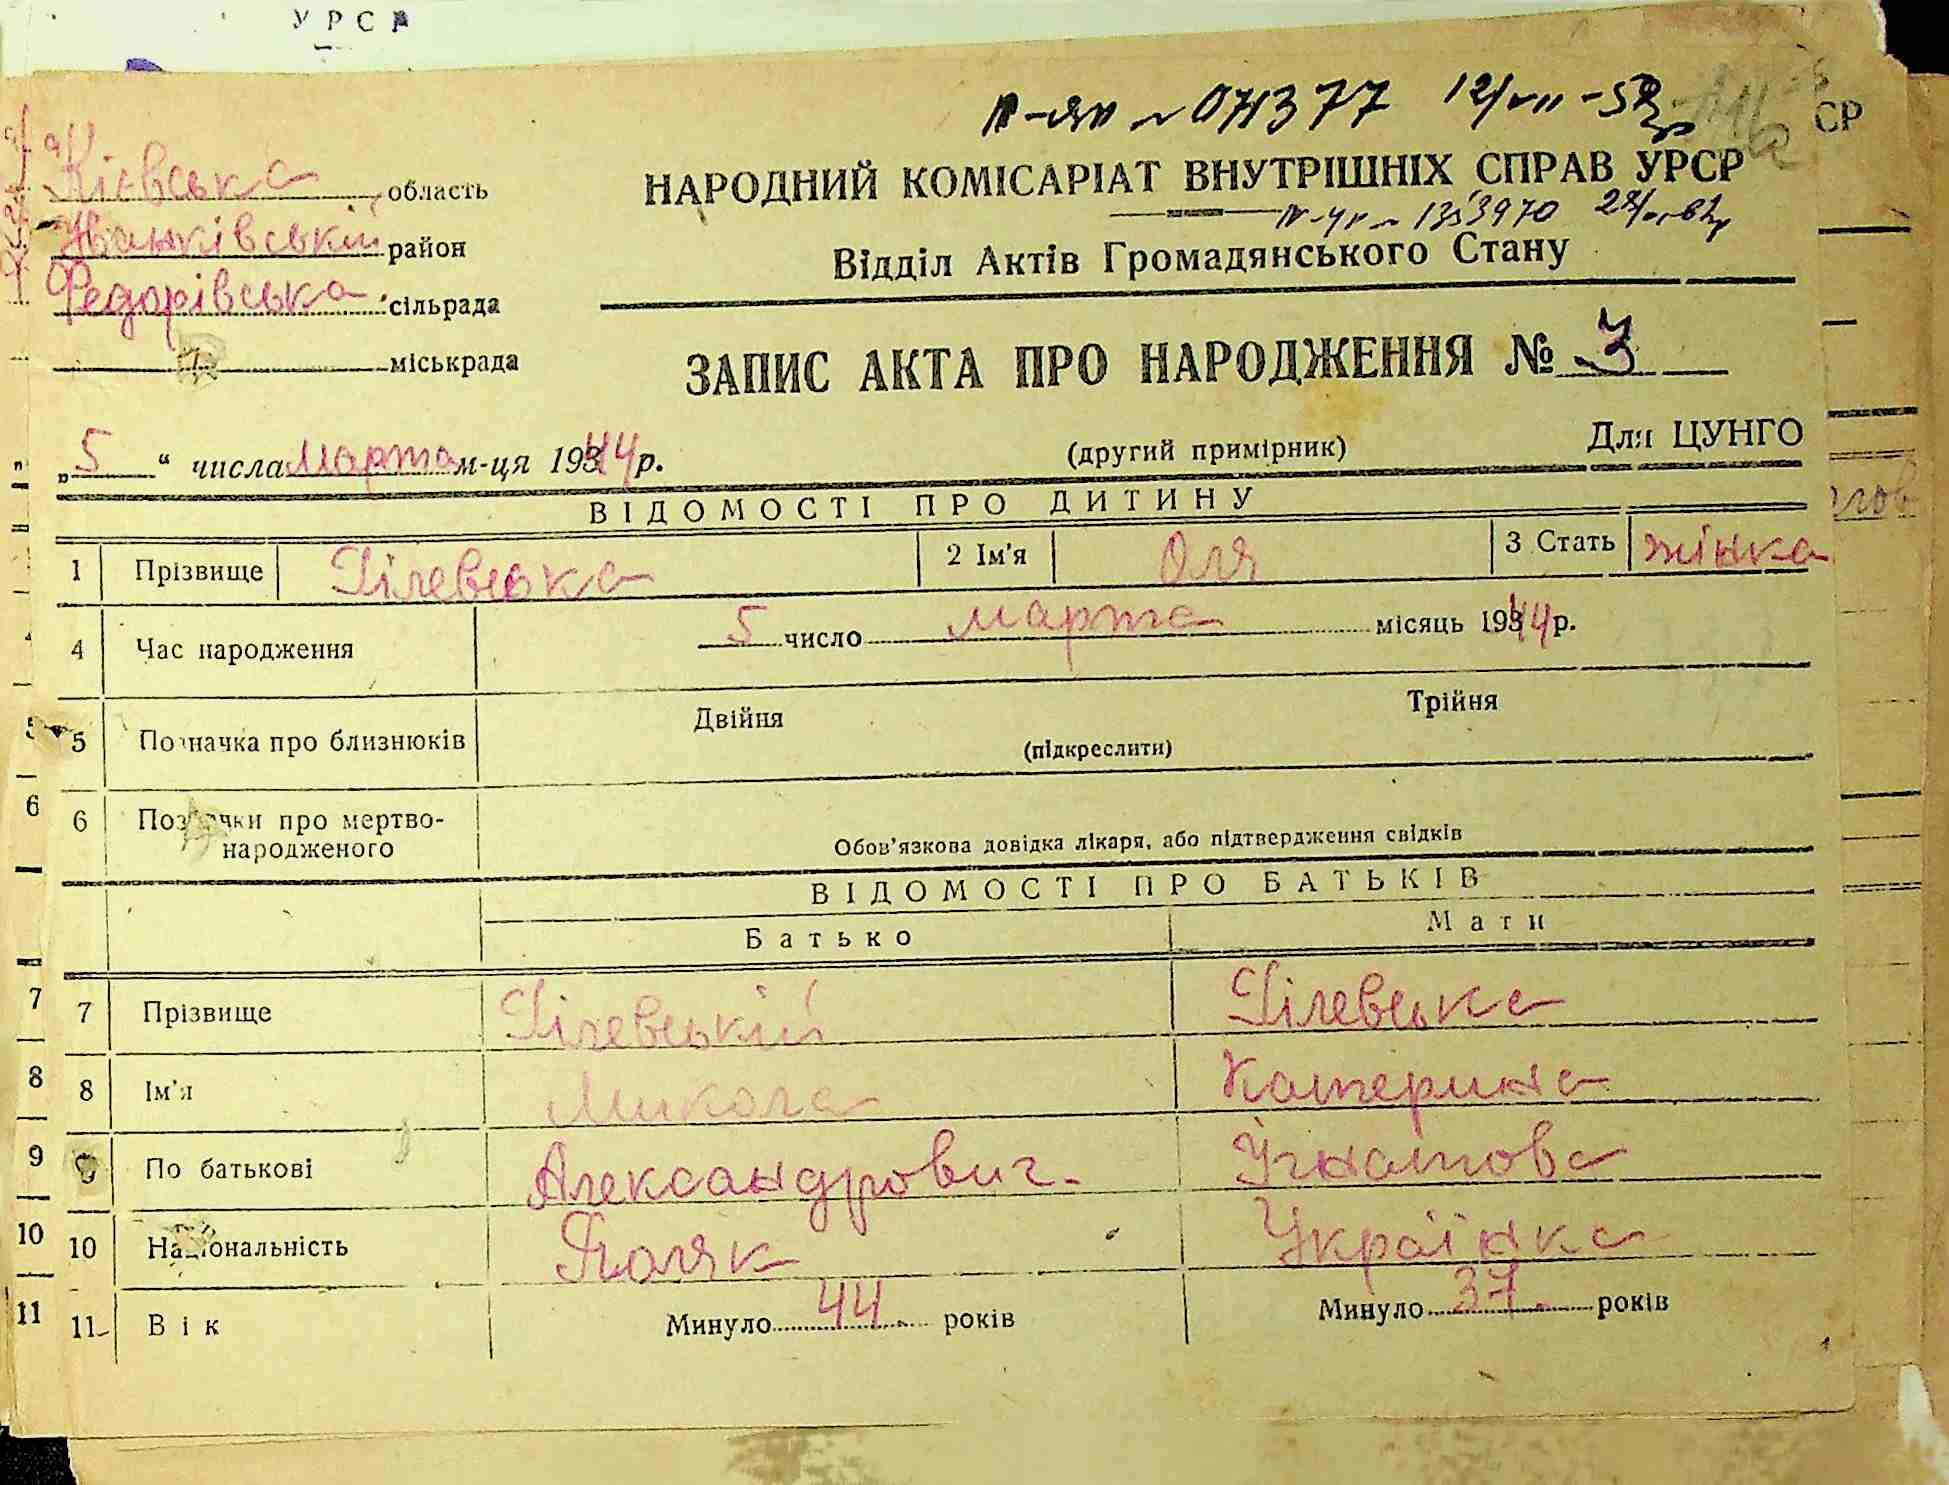 УРСР
№ 071377 12/VII-52р
Київська область
НАРОДНИЙ КОМІСАРІАТ ВНУТРІШНІХ СПРАВ УРСР
Іванківський район
Відділ Актів Громадянського Стану
Федорівська сільрада
міськрада
ЗАПИС АКТА ПРО НАРОДЖЕННЯ № 3
„5“ числа марта м-ця 1944 р.
(другий примірник)
Для ЦУНГО
ВІДОМОСТІ ПРО ДИТИНУ
1 Прізвище Гілевська 2 Ім'я Оля 3 Стать жінка
4 Час народження 5 число марта місяць 1944 р.
5 Позначка про близнюків Двійня Трійня
(підкреслити)
6 Позначки про мертво-
народженого Обов'язкова довідка лікаря, або підтвердження свідків
ВІДОМОСТІ ПРО БАТЬКІВ
Батько Мати
7 Прізвище Гілевський Гілевська
8 Ім'я Микола Катерина
9 По батькові Александрович. Ігнатова
10 Національність Поляк Українка
11 Вік Минуло 44 років Минуло 37 років